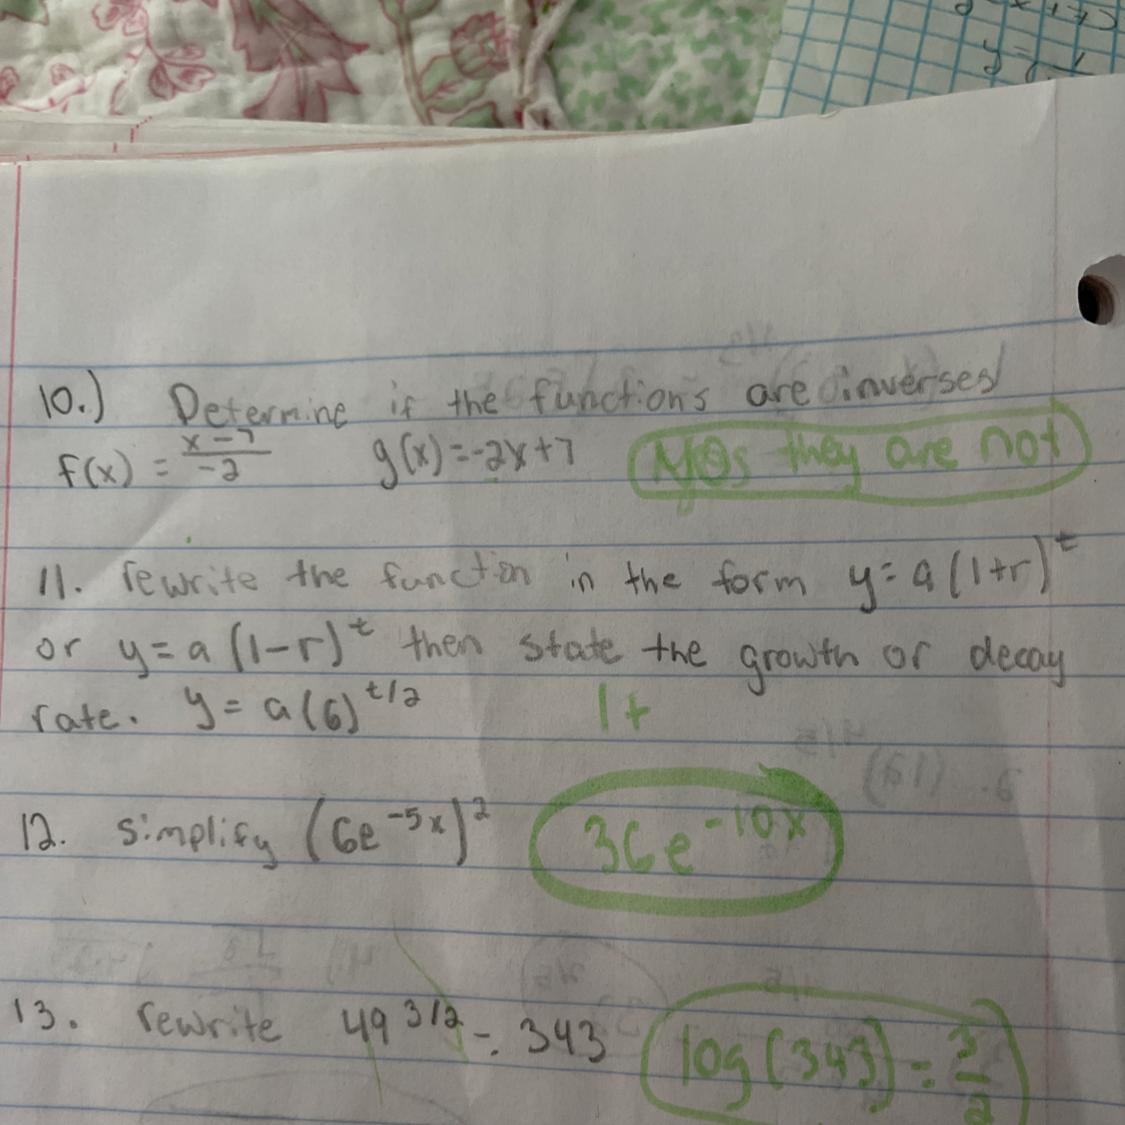 10.) Determine if the functions are inverses
f(x) = x-7/-2 g(x)=-2x+7 they are not
11. rewrite the function in the form y=a(1+r)^t
or y=a(1-r)^t then state the growth or decay
rate. y=a(6)^t/2 1+
12. simplify (6e^-5x)^2 36e^-10x
13. rewrite 49^3/2 = 343 log(343)=3/2